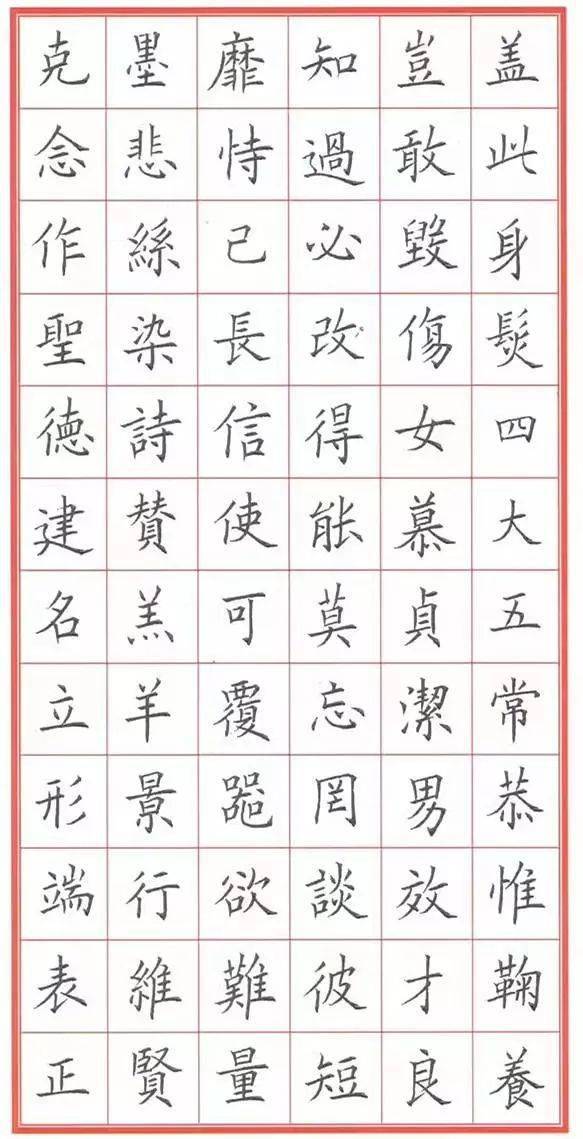 盖此身髮四大五常恭惟鞠養
豈敢毀傷女慕貞潔男效才良
知過必改得能莫忘罔談彼短
靡恃己長信使可覆器欲難量
墨悲絲染詩賛羔羊景行維賢
克念作聖德建名立形端表正